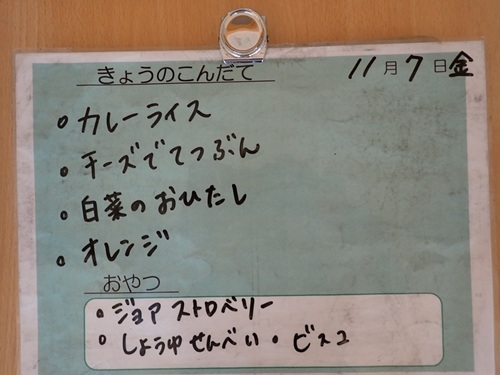 きょうのこんだて 11月7日金
・カレーライス
・チーズでてつぶん
・白菜のおひたし
・オレンジ
おやつ
・ジョア ストロベリー
・しょうゆせんべい・ビスコ